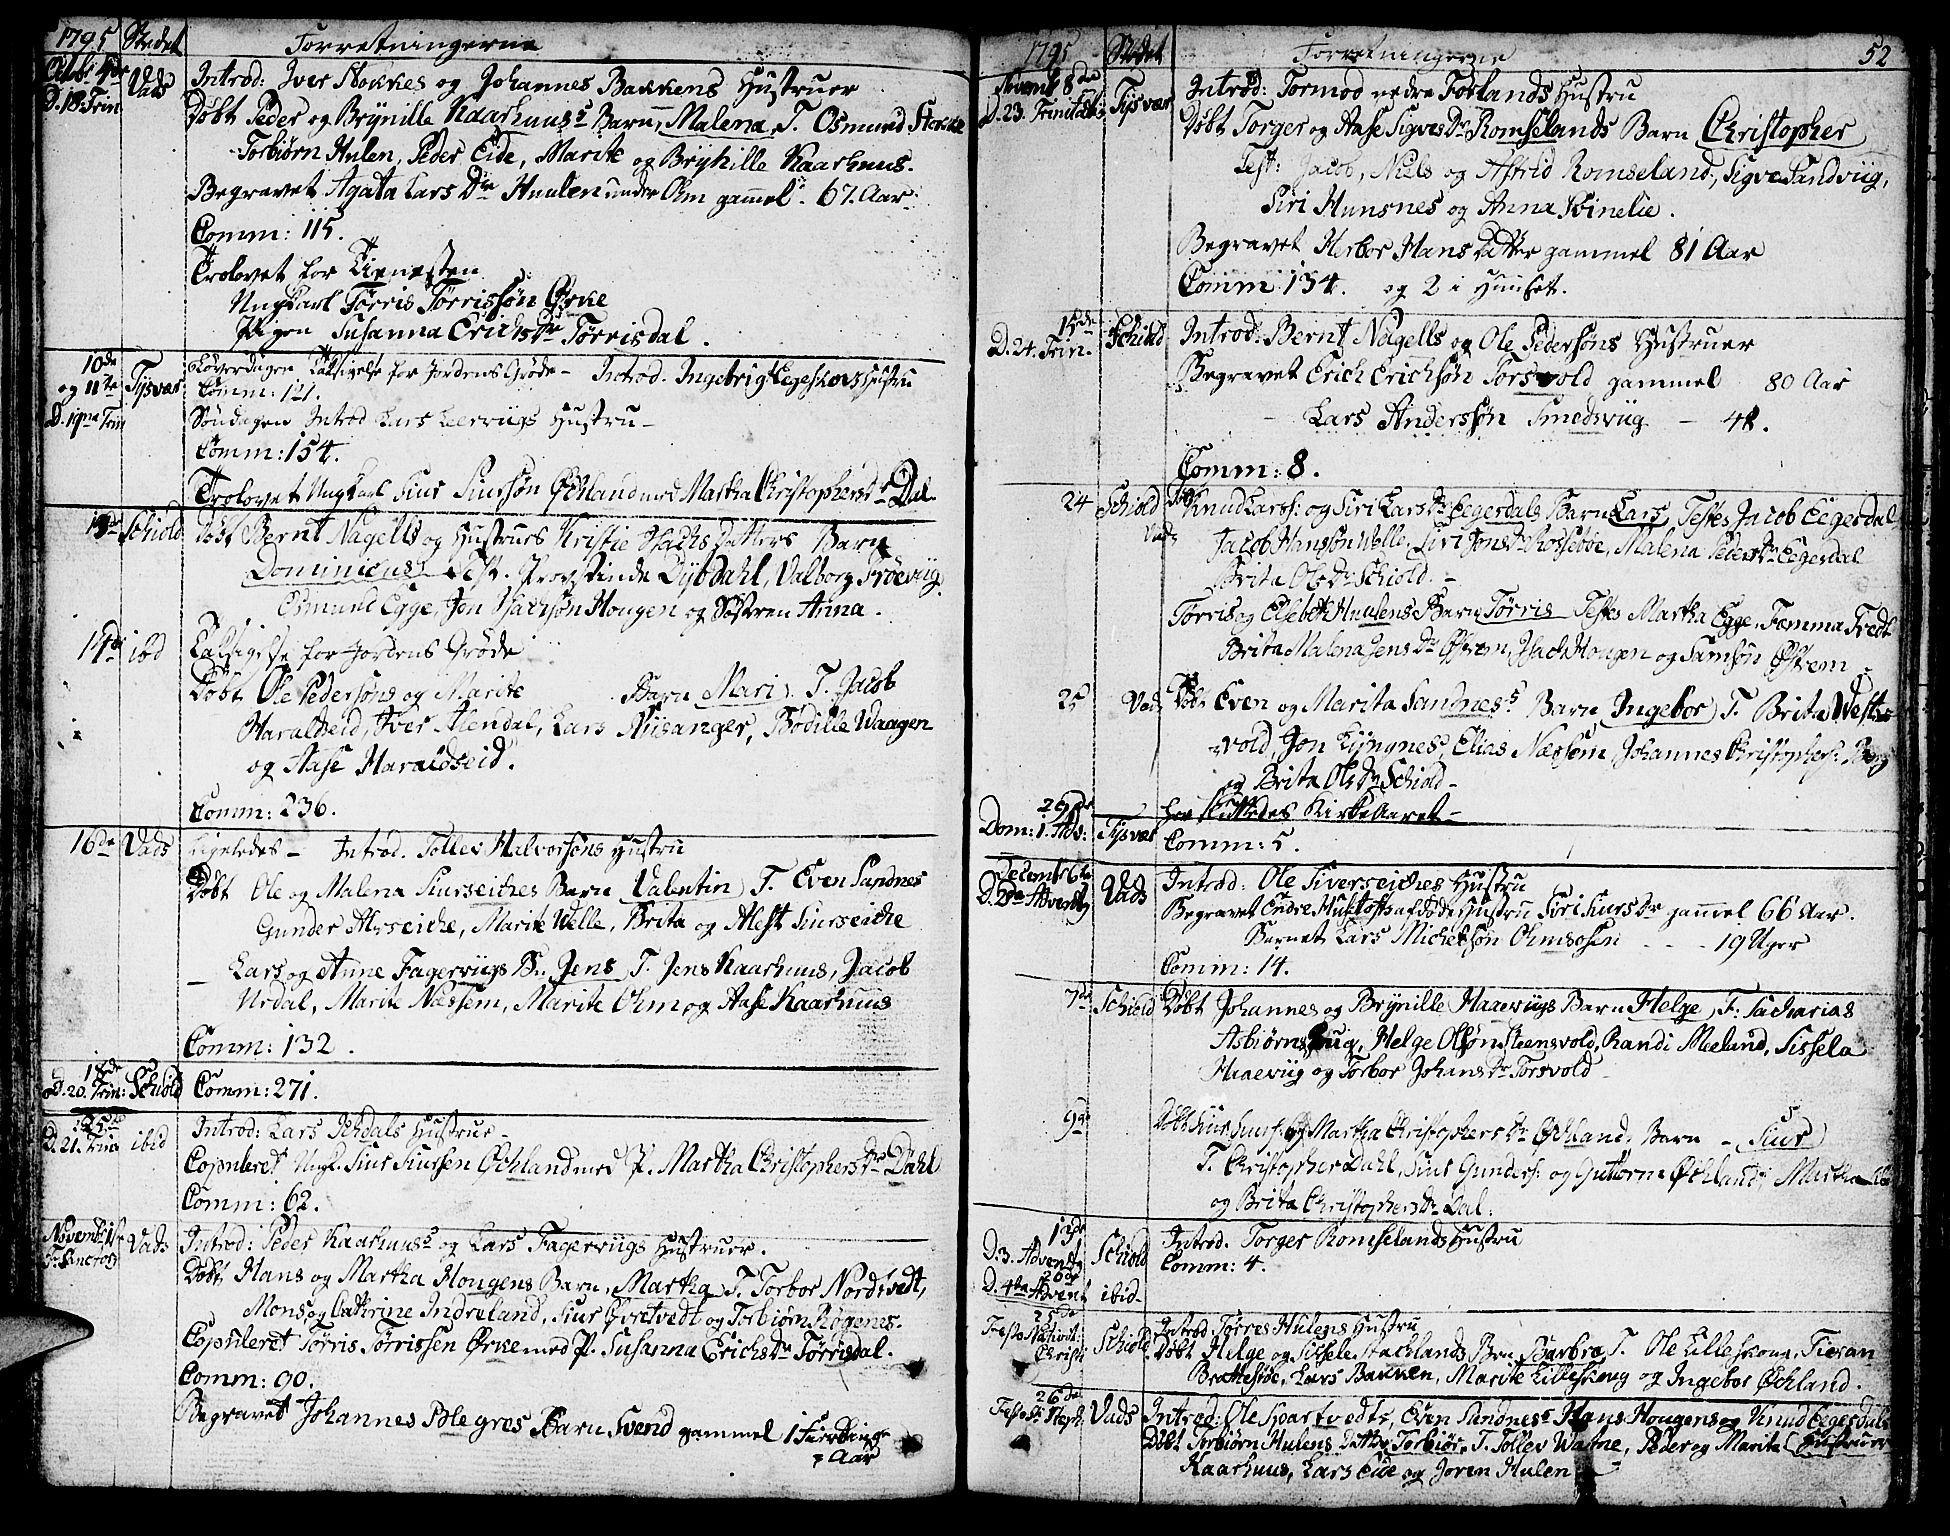 1795 Stedet Forretningerne
Octobr 4de Vads Introd: Iver Stokkes og Johannes Bakkens Hustruer
D. 18 Trin Døbt Peder og Brynille Kaarhuus's Barn, Malena, T. Osmund Stokke
Torbiørn Hulen, Peder Eide, Marite og Brynille Kaarhuus.
Begravet Agata Lars Dtr Huulen undre Ohm gammel 67. Aar
Comm: 115.
Trolovet før Tienesten
Ungkarl Tørris Tørrissøn Ørke
Pigen Susanna Erichs Dtr Tørrisdal.
10de og 11te Tysvær Løverdagen Taksigelse for Jordens Grøde - Introd. Ingebrigt Eegeskovs Hustru
Comm: 121.
D. 19na Trin Søndagen Introd Lars Leervigs Hustru -
Comm: 154.
Trolovet Ungkarl Siur Siursøn Øchland med Martha Christophers Dtr Dal
13de Schiold Døbt Bernt Nagells og Hustrues Kristie Isachs Datters Barn
Dominicus. Test. Provstinde Dybdahl, Valborg Frøeviig
Osmund Egge, Jon Isachsøn Hougen og Søstren Anna.
14de ibid Taksigelse for Jordens Grøde
Døbt Ole Pedersøns og Marite Barn Mari, T. Jacob
Haraldseid, Iver Alendal, Lars Nusanger, Bodille Waagen
og Aase Haraldseid.
Comm: 236.
16de Vads Ligeledes - Introd. Tollev Halvorsøns Hustru
Døbt Ole og Malena Siurseiches Barn Valentin, T. Even Sandnes
Gunder Alvseiche, Marite Welle, Brita og Alest Siurseiche
- Lars og Anne Fagerviigs B. Jens, T. Jens Kaarhuus, Jacob
Urdal, Marite Næssem, Marite Ohm og Aase Kaarhuus
Comm: 132.
18de D. 20. Trin: Schiold Comm: 271.
25de Introd: Lars Ichdals Hustrue -
D. 21. Trin ibid Copuleret Ungk. Siur Siursen Øchland med P. Martha Christophers Dtr Dahl
Comm: 62.
Novembr 1ste Vads Introd: Peder Kaarhuus's og Lars Fagerviigs Hustruer.
F. Sanctor Døbt Hans og Martha Hougens Barn, Martha, T. Torbor Nordtvedt,
Mons og Cathrine Indreland, Siur Øvretvedt og Torbiørn Røgenes.
Copuleret Tørris Tørrissen Ørke med P. Susanna Erichs Dtr Tørrisdal.
Comm: 90.
Begravet Johannes Blegres Barn Svend gammel 1 Fierding
Aar
1795 Stedet Forretningerne 52
Novemb 8de Tysvær Introd: Tormod nedre Førlands Hustru
D. 23. Trinitatis Døbt Torger og Aase Sigves Dtr Romselands Barn Christopher
Test: Jacob, Niels og Astrid Romseland, Sigve Sandviig,
Siri Hunsnes og Anna Svinelie.
Begravet Herbor Hans Datter gammel 81 Aar
Comm: 134. og 2 i Huuset.
15de D. 24. Trin. Schiold Introd: Bernt Nagells og Ole Pedersøns Hustruer
Begravet Erich Erichsøn Torsvold gammel 80 Aar
- Lars Anderssøn Smedsviig - 48.
Comm: 8.
24 Schiold Døbt Knud Larss: og Siri Lars Dtr Eegesdals Barn Lars, Testes Jacob Eegesdal
Vads Jacob Hansøn Welle, Siri Jons Dtr Rossebøe, Malena Peders Dtr Eegesdal
Brita Ols Dtr Schiold. -
Tørris og Elsebeth Huulens Barn Tørris Testes Martha Egge, Femma Tvedt
Brita Malena Jens Dtr Østrem, Isach Hougen og Samsøn Østrem
25 Vads Døbt Even og Marita Sandnes's Barn Ingebor, T. Brita Westre
vold, Jon Lyngnes, Elias Næssem, Johannes Christophers: Berg
og Brita Ols Dtr Schiold -
her sluttedes Kirke Aaret -
29de Dom: 1. Adv: Tysvær Comm: 5.
Decembr 6te Vads Introd: Ole Siverseiches Hustru
D. 2de Advent Begravet Endre Hustofts afdøde Hustru Siri Siurs Dtr gammel 66 Aar.
Barnet Lars Michelsøn Ohmsosen - - - 19 Uger
Comm: 14.
7de Schiold Døbt Johannes og Brynille Haaeviigs Barn Helge, T: Sacharias
Asbiørns Bug, Helge Olsøn Steensvold, Randi Meeland, Sissela
Haaeviig og Torbor Johans Dtr Torsvold
9de Døbt Siur Siurs: og Martha Christophers Dtr Øchlands Barn - Siur
T. Christopher Dahl, Siur Gunders: og Guttorm Øchland, Martha Dal
og Brita Christophers Dtr Dal:
13de D. 3. Advent Schiold Introd. Torger Romselands Hustru
Comm: 4.
20de D. 4te Advent ibid -
25de Introd: Tørres Hulens Hustru
Festo Nativit: Christi Schiold Døbt Helge og Sissele Stachlands Brn Barbro, T. Ole Lilleskoug, Tieran
Brattestøe, Lars Bakken, Marite Lilleskoug og Ingebor Øchland.
26de Festo St. Steph. Vads Introd: Ole Spartvedts, Even Sandnes's Hans Hougens og Knud Eegesdals
Døbt Torbiørn Hulens Datter Torbiør, T. Tollev Watne, Peder og Marita Hustruer
Kaarhuus, Lars Eide og Joren Hulen